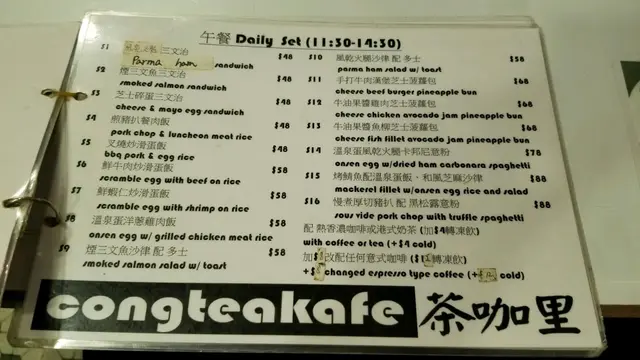 午餐 Daily Set (11:30-14:30)
S1 三文治
Parma ham sandwich $48
S2 煙三文魚三文治 $48
smoked salmon sandwich
S3 芝士碎蛋三文治 $48
cheese & mayo egg sandwich
S4 煎豬扒餐肉飯 $48
pork chop & luncheon meat rice
S5 叉燒炒滑蛋飯 $48
bbq pork & egg rice
S6 鮮牛肉炒滑蛋飯 $58
scramble egg with beef on rice
S7 鮮蝦仁炒滑蛋飯 $58
scramble egg with shrimp on rice
S8 溫泉蛋洋蔥雞肉飯 $58
onsen egg w/ grilled chicken meat rice
S9 煙三文魚沙律 配 多士 $58
smoked salmon salad w/ toast
S10 風乾火腿沙律 配 多士 $58
parma ham salad w/ toast
S11 手打牛肉漢堡芝士菠蘿包 $68
cheese beef burger pineapple bun
S12 牛油果醬雞肉芝士菠蘿包 $68
cheese chicken avocado jam pineapple bun
S13 牛油果醬魚柳芝士菠蘿包 $68
cheese fish fillet avocado jam pineapple bun
S14 溫泉蛋風乾火腿卡邦尼意粉 $78
onsen egg w/dried ham carbonara spaghetti
S15 烤鯖魚配溫泉蛋飯、和風芝麻沙律 $88
mackerel fillet w/onsen egg rice and salad
S16 慢煮厚切豬扒 配 黑松露意粉 $88
sous vide pork chop with truffle spaghetti
配 熱香濃咖啡或港式奶茶 (加$4轉凍飲)
with coffee or tea (+$4 cold)
加$ 改配任何意式咖啡 ($ 轉凍飲)
+$ changed espresso type coffee (+ cold)
congteakafe 茶咖里